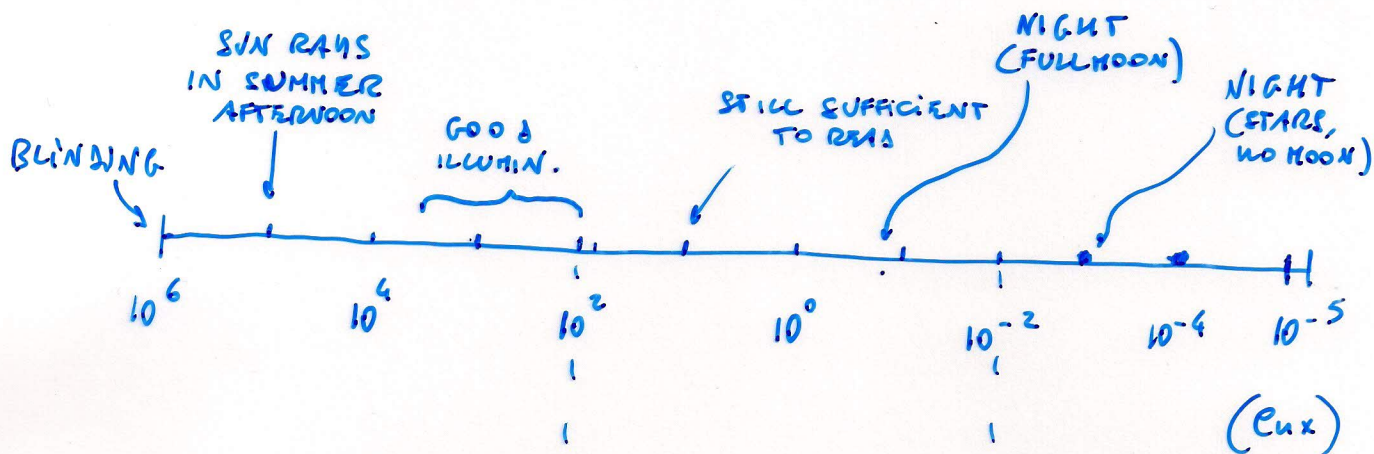 SUN RAYS
IN SUMMER
AFTERNOON
BLINDING
GOOD
ILLUMIN.
STILL SUFFICIENT
TO READ
NIGHT
(FULL MOON)
NIGHT
(STARS,
NO MOON)
10⁶
10⁴
10²
10⁰
10⁻²
10⁻⁴
10⁻⁵
(lux)